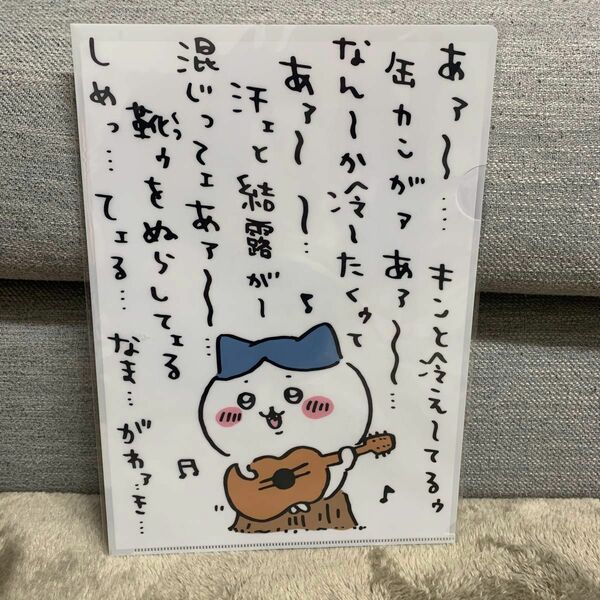 あァ〜……
キンと冷えーてるゥ
缶カンがァあァ〜〜…
なんーか冷ーたくゥて
あァ〜〜…
汗ェと結露がー
混じってェあァ〜〜…
靴ゥをぬらしてェる
しめっ…てェる…なま…がわァき…